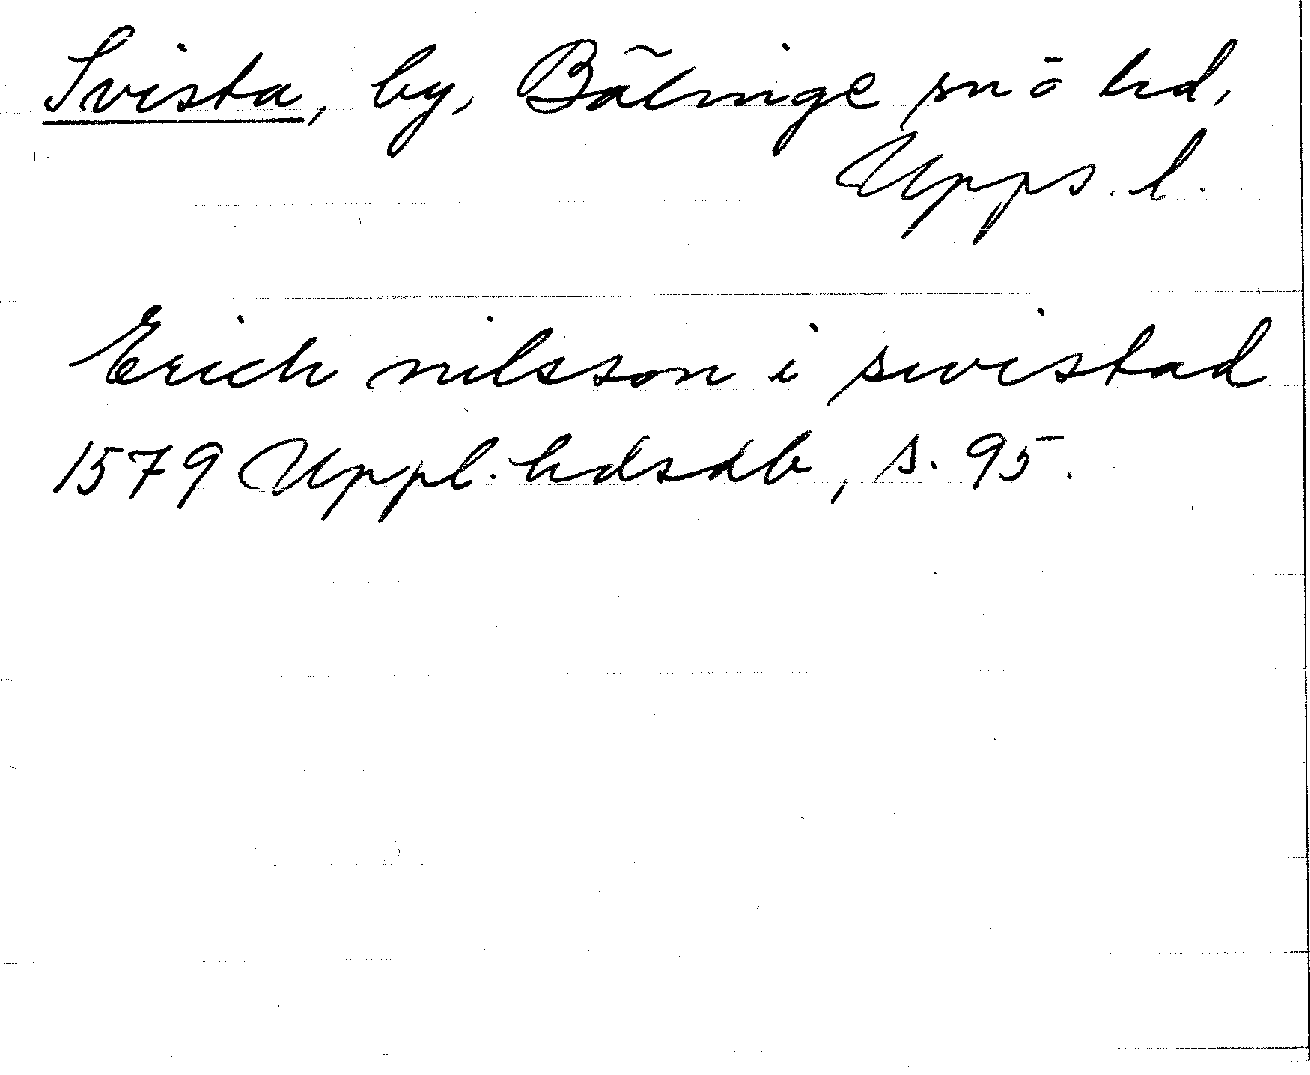 Svista, by, Bälinge sn o hd,
Upps. l.
Erich nilsson i swistad
1579 Uppl. hdsdb, s. 95.